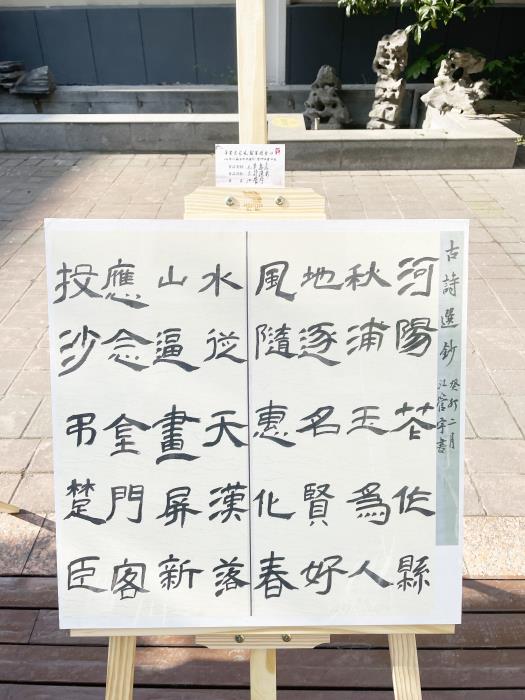 古詩選鈔
癸卯二月
河陽花作縣
秋浦玉為人
地逐名賢好
風隨惠化春
水從天漢落
山逼畫屏新
應念金門客
投沙弔楚臣